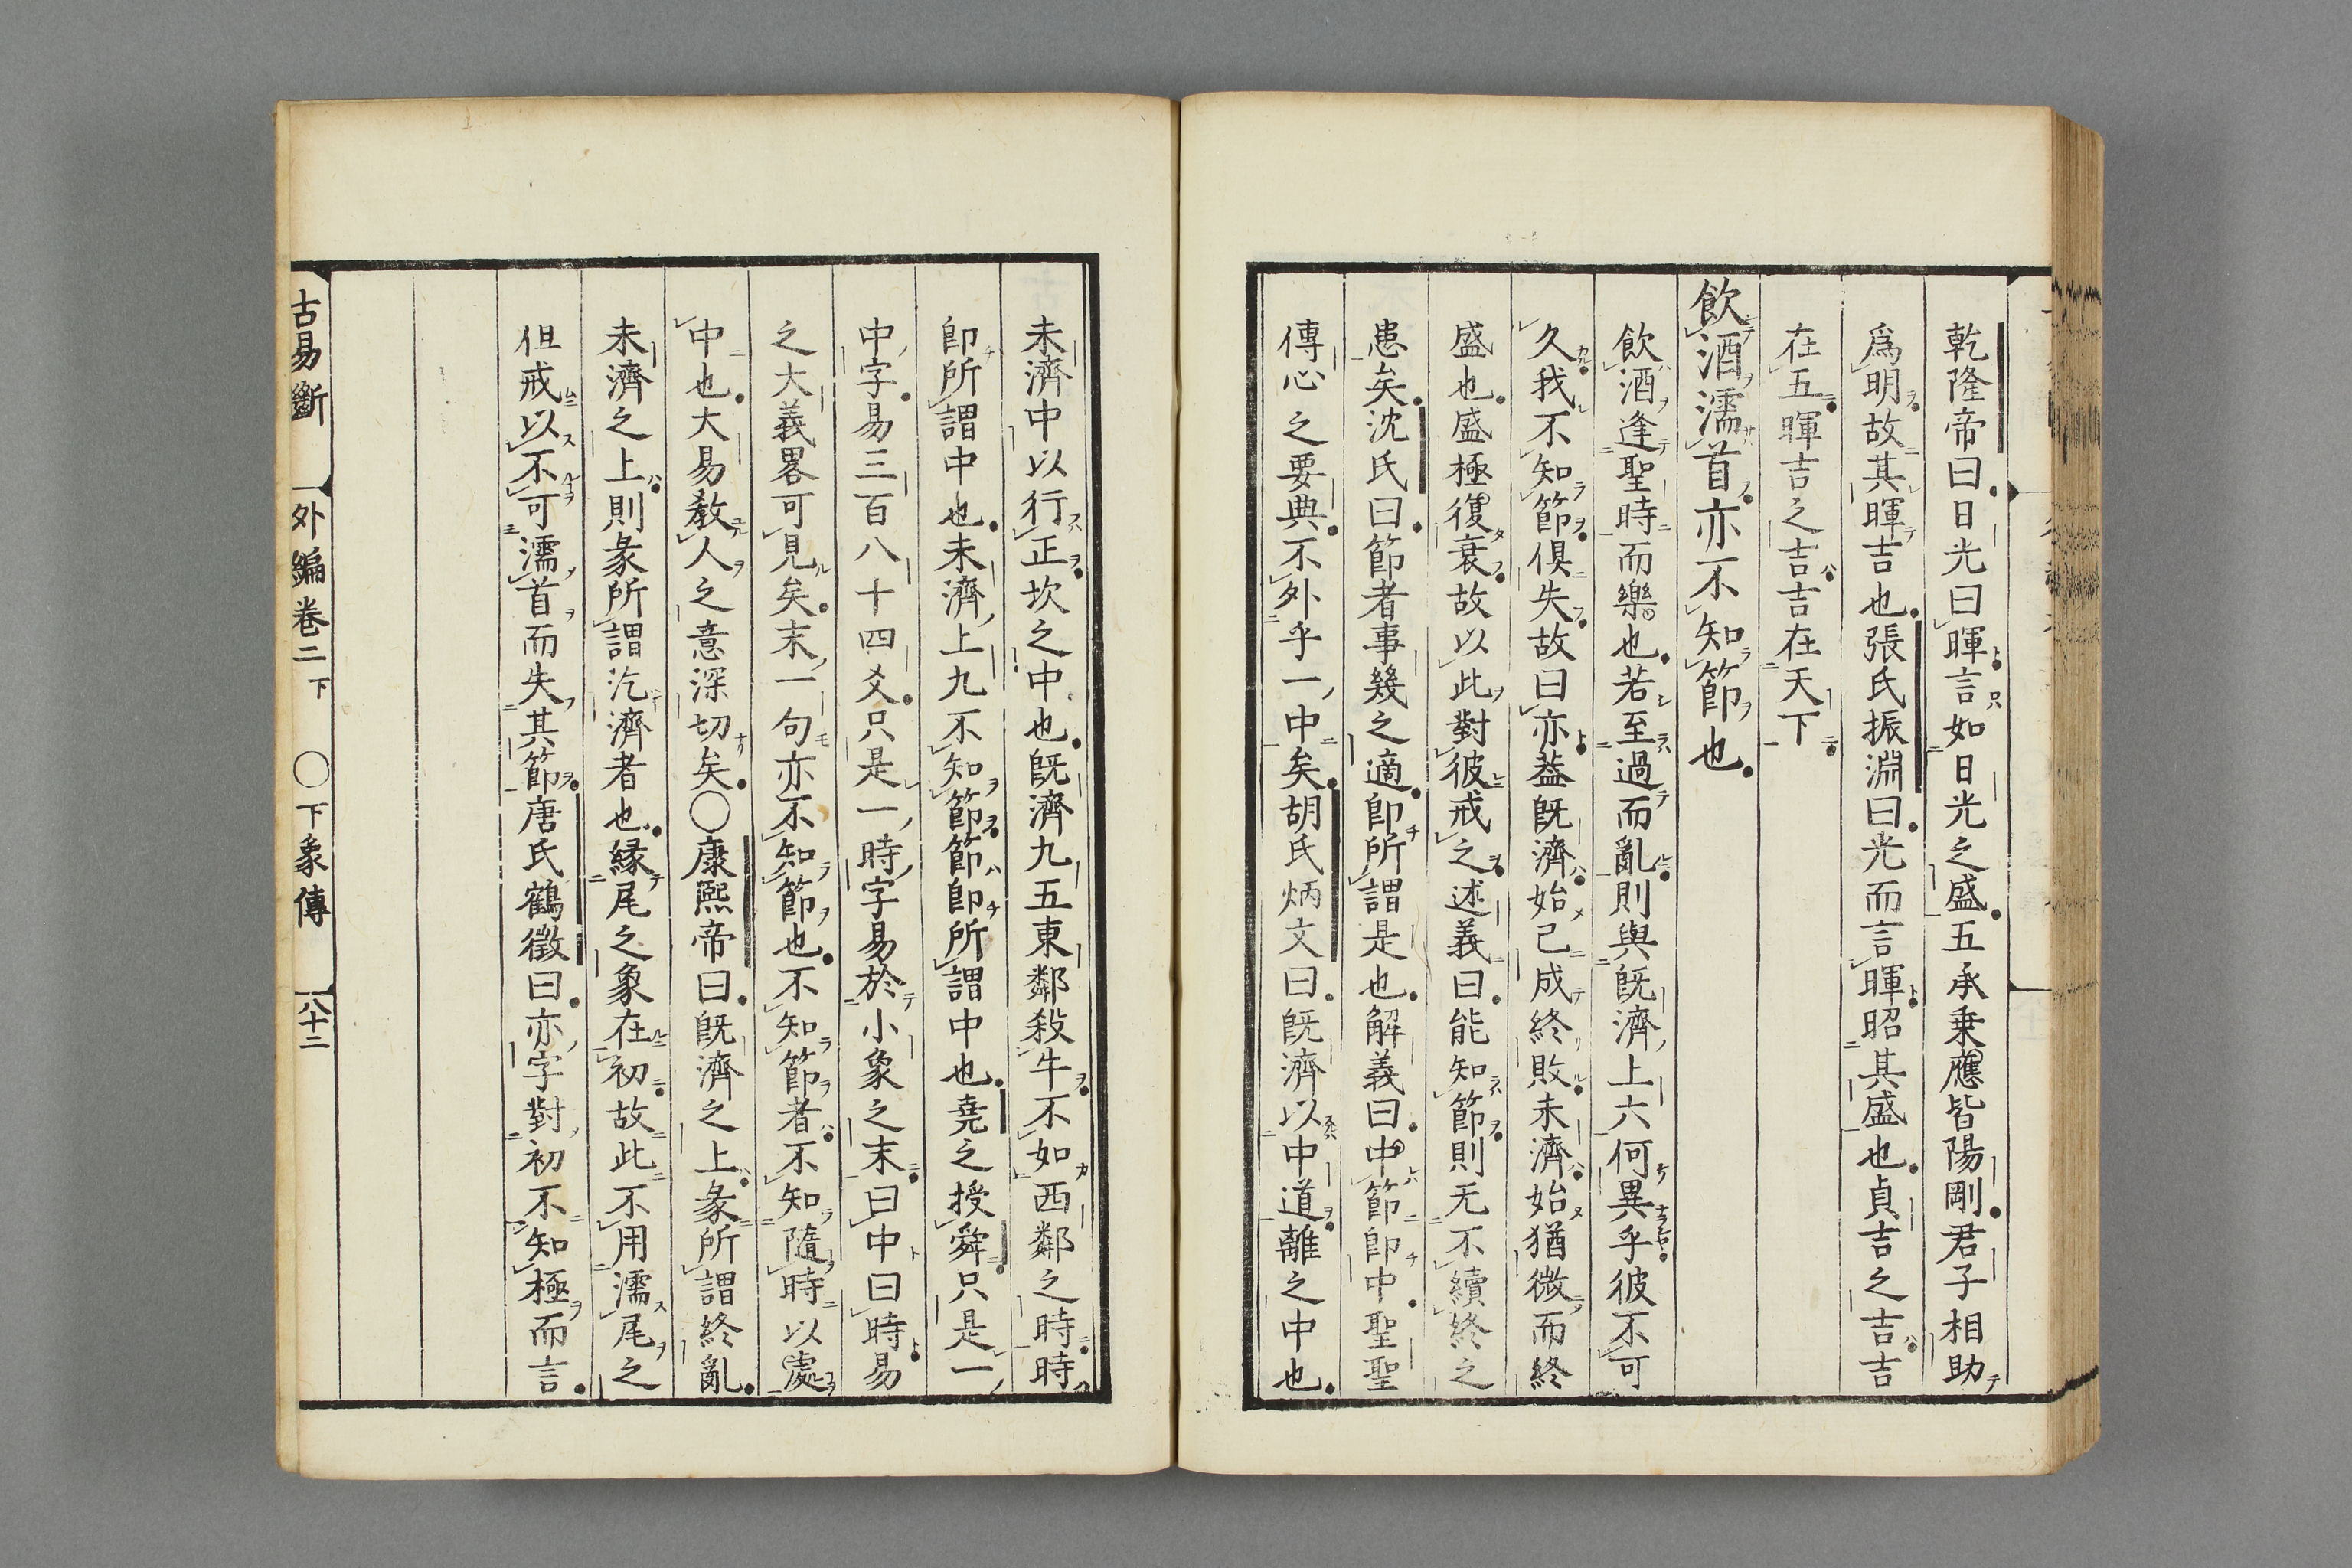 乾隆帝曰日光曰暉言如日光之盛五承乗應皆陽剛君子相助
爲明故其暉吉也張氏振淵曰光而言暉昭其盛也貞吉之吉吉
在五暉吉之吉吉在天下
飮酒濡首亦不知節也
飮酒逢聖時而樂也若至過而亂則與旣濟上六何異乎彼不可
久我不知節俱失故曰亦葢旣濟始已成終敗未濟始猶微而終
盛也盛極復衰故以此對彼戒之述義曰能知節則无不續終之
患矣沈氏曰節者事幾之適卽所謂是也解義曰中節卽中聖聖
傳心之要典不外乎一中矣胡氏炳文曰旣濟以中道離之中也
未濟中以行正坎之中也旣濟九五東鄰殺牛不如西鄰之時時
卽所謂中也未濟上九不知節節卽所謂中也堯之授舜只是一
中字易三百八十四爻只是一時字易於小象之末曰中曰時易
之大義畧可見矣末一句亦不知節也不知節者不知隨時以處
中也大易敎人之意深切矣○康熙帝曰旣濟之上彖所謂終亂
未濟之上則彖所謂汔濟者也緣尾之象在初故此不用濡尾之
但戒以不可濡首而失其節唐氏鶴徵曰亦字對初不知極而言
古易斷 外編卷二下 ○下象傳 八十二